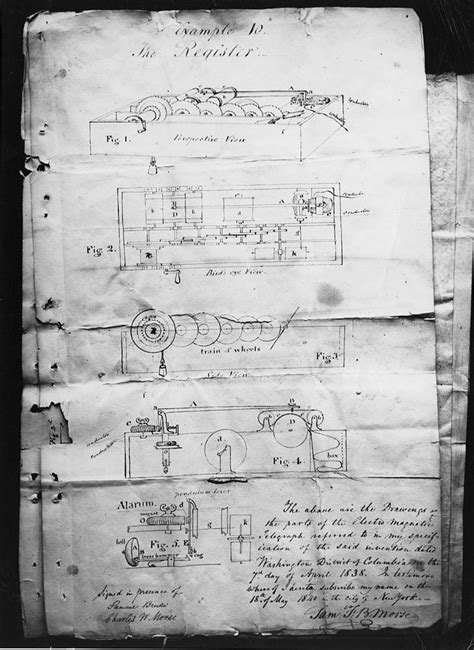 Example 10.
The Register.
A
conductor
Fig 1.
Perspective View
A
Fig. 2.
k
Birds eye View
train of wheels
Fig. 3
Side View
A
B
D
d
Fig. 4.
box
pendulum lever
Alarum.
magnet
Fig. 5.
bell
hammer
cog
g
k
The above are the Drawings of
the parts of the Electro Magnetic
Telegraph referred to in my speci-
fication of the said invention dated
Washington District of Columbia on the
7th day of April 1838. In testimony
whereof I hereto subscribe my name on the
18th of May 1840 in the city of New York
Signed in presence of
Charles W. Morse
Sam F. B. Morse